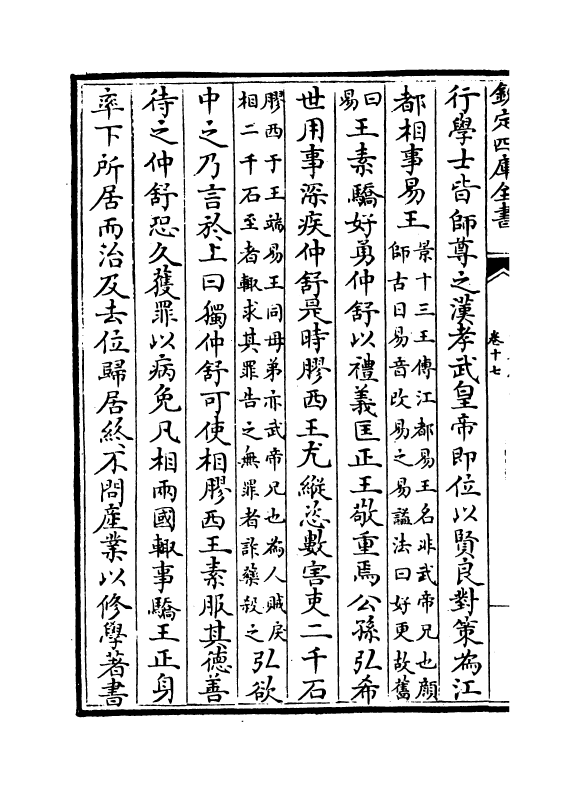 欽定四庫全書
卷十七
行學士皆師尊之漢孝武皇帝即位以賢良對策為江
都相事易王景十三王傳江都易王名非武帝兄也顔師古曰易音改易之易謚法曰好更故舊
曰易王素驕好勇仲舒以禮義匡正王敬重焉公孫弘希
世用事深疾仲舒是時膠西王尤縱恣數害吏二千石
膠西于王端易王同母弟亦武帝兄也為人賊戾相二千石至者輒求其罪告之無罪者詐藥殺之弘欲
中之乃言於上曰獨仲舒可使相膠西王素服其徳善
待之仲舒恐久獲罪以病免凡相兩國輒事驕王正身
率下所居而治及去位歸居終不問產業以修學著書